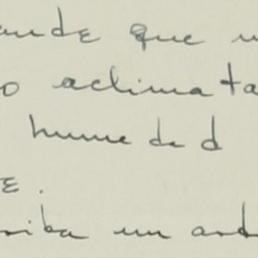 ande que u
o aclimata
humedad
e.
riba un ard